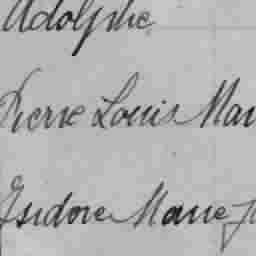 Adolphe
Pierre Louis Mari
Isidore Marie J